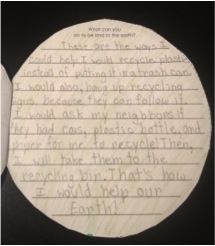 What can you
do to be kind to the earth?
These are the ways I
could help I would recycle plastic
instead of putting it in a trash can.
I would also, have up recycling
signs because they can follow it.
I would ask my neighbors if
they had cans, plastic bottle, and
paper for me to recycle! Then,
I will take them to the
recycling bin. That's how
I would help our
Earth!